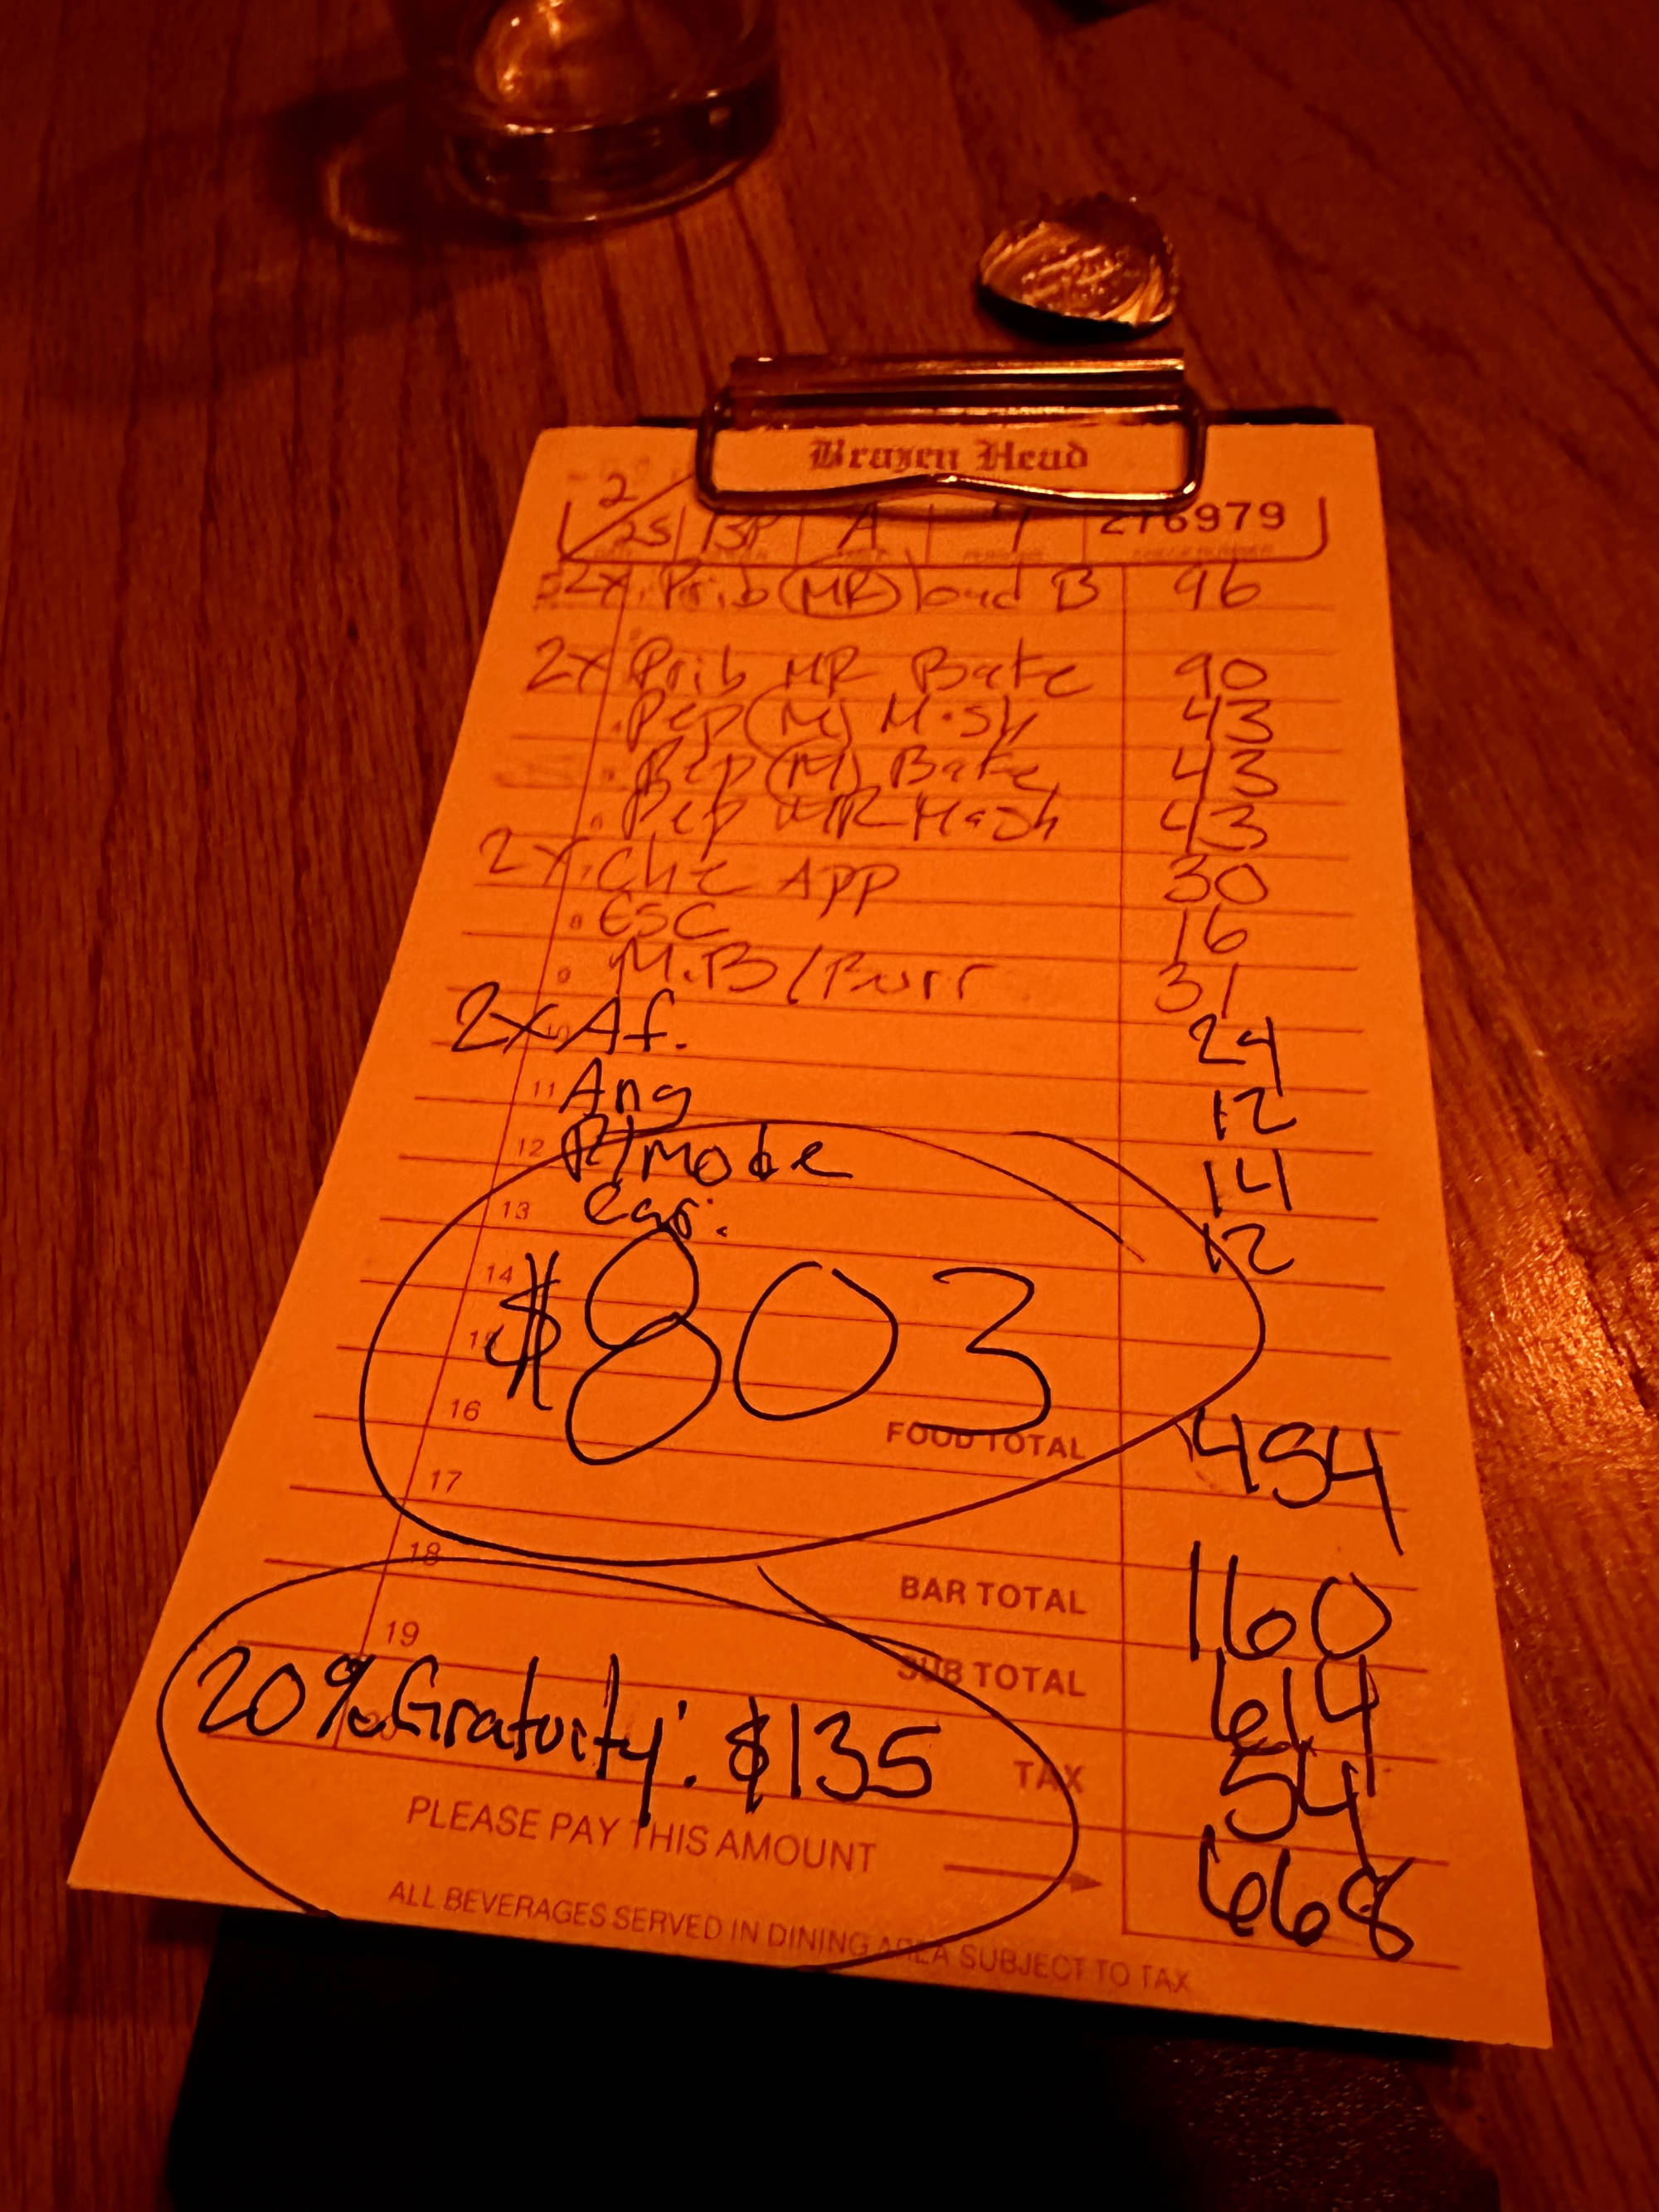 Brazen Head
2/25 BP A 7 276979
2x Prib (MR) load B 96
2x Prib MR Bake 90
Pep (M) Mash 43
Pep (M) Bake 43
Pep MR Mash 43
2x Chz App 30
8 ESC 16
9 M.B/Burr 31
2x Af. 24
11 Ang 12
12 P/mode 14
13 Car. 12
14 $803
15
16 FOOD TOTAL 454
17
18 BAR TOTAL 160
19 SUB TOTAL 614
20% Gratuity: $135 TAX 54
PLEASE PAY THIS AMOUNT 668
ALL BEVERAGES SERVED IN DINING AREA SUBJECT TO TAX